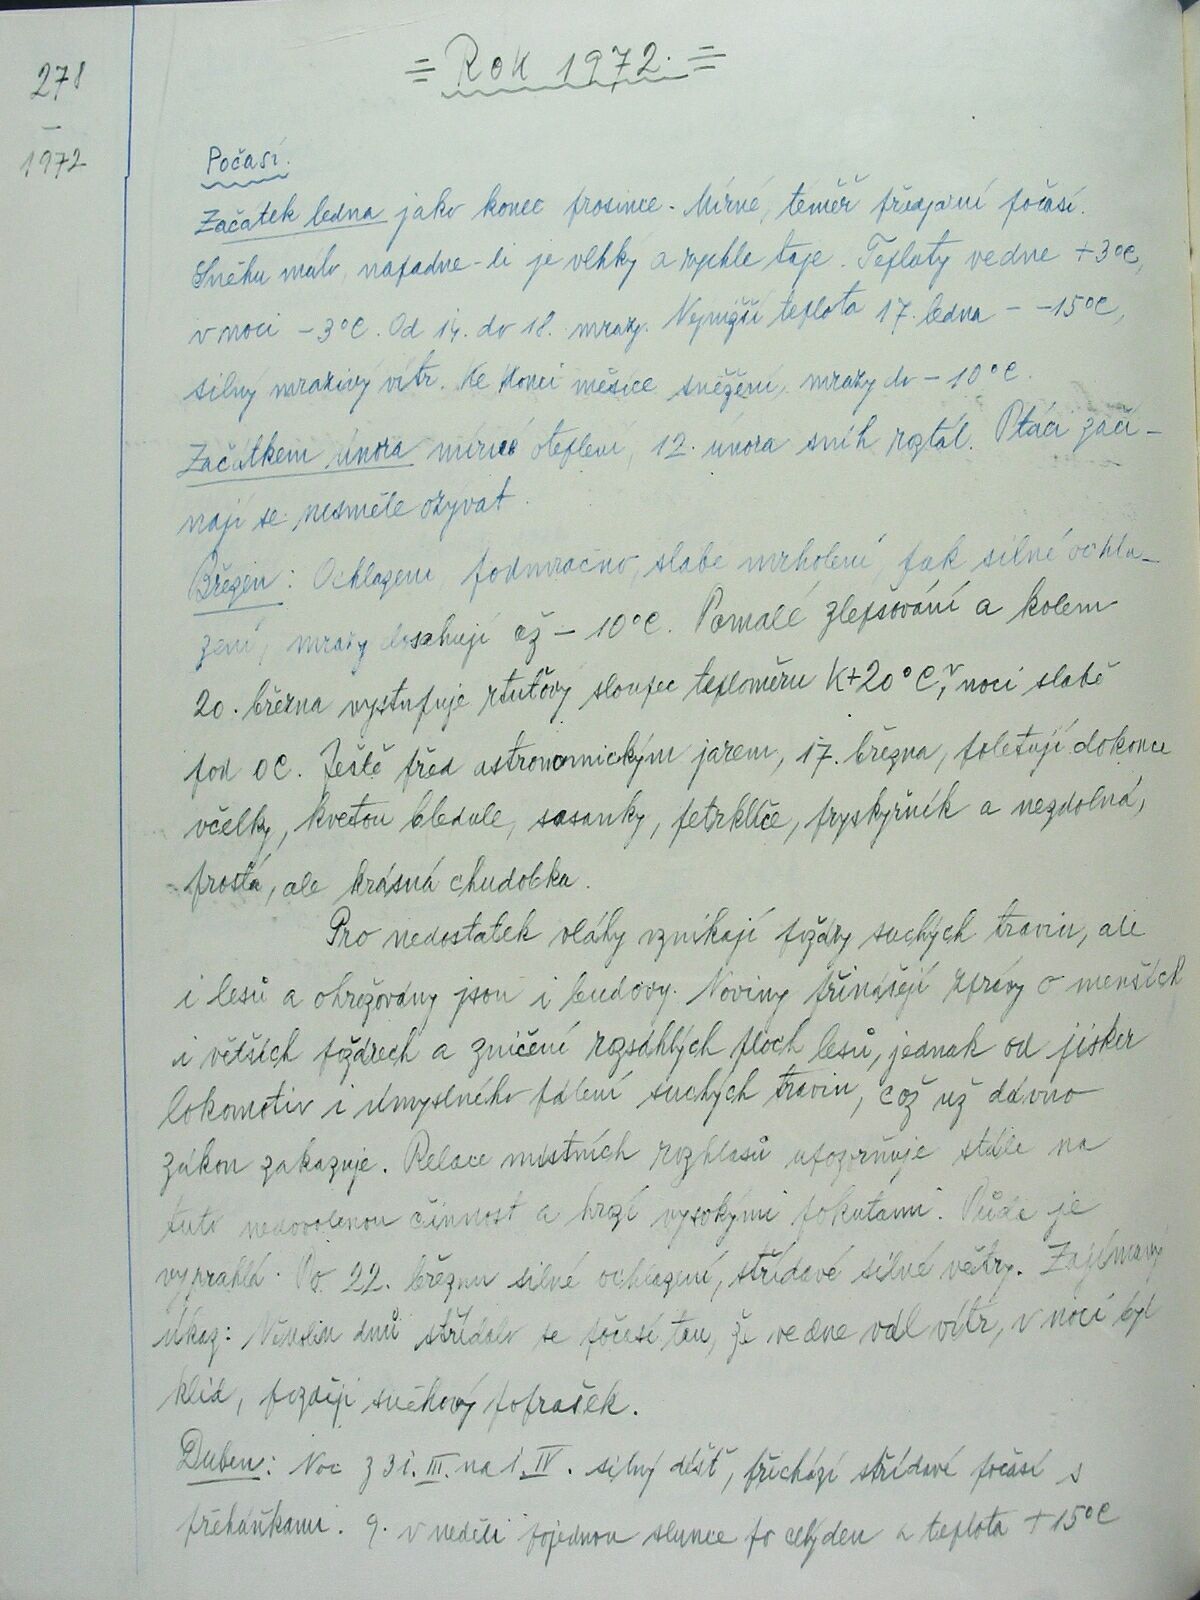 278
—
1972
= Rok 1972. =
Počasí.
Začátek ledna jako konec prosince. Mírné, téměř předjarní počasí.
Sněhu málo, napadne-li je vlhký a rychle taje. Teploty ve dne +3°C,
v noci -3°C. Od 14. do 18. mrazy. Nejnižší teplota 17. ledna - -15°C,
silný mrazivý vítr. Ke konci měsíce sněžení, mrazy do -10°C.
Začátkem února mírné oteplení, 12. února sníh roztál. Ptáci začí-
nají se nesměle ozývat.
Březen: Ochlazení, podmračno, slabé mrholení, pak silné ochla-
zení, mrazy dosahují až -10°C. Pomalé zlepšování a kolem
20. března vystupuje rtuťový sloupec teploměru k +20°C, v noci slabě
pod 0C. Ještě před astronomickým jarem, 17. března, poletují dokonce
včelky, kvetou bledule, sasanky, petrklíče, pryskyřník a nezdolná,
prostá, ale krásná chudobka.
Pro nedostatek vláhy vznikají požáry suchých travin, ale
i lesů a ohrožovány jsou i budovy. Noviny přinášejí zprávy o menších
i větších požárech a zničení rozsáhlých ploch lesů, jednak od jisker
lokomotiv i úmyslného pálení suchých travin, což už dávno
zákon zakazuje. Relace místních rozhlasů upozorňuje stále na
tuto nedovolenou činnost a hrozí vysokými pokutami. Půda je
vyprahlá. Po 22. březnu silné ochlazení, střídavě silné větry. Zajímavý
úkaz: Několik dnů střídalo se počasí tak, že ve dne vál vítr, v noci byl
klid, později sněhový poprašek.
Duben: Noc z 31. III. na 1. IV. silný déšť, přichází střídavé počasí s
přeháňkami. 9. v neděli pojednou slunce po celý den a teplota +15°C